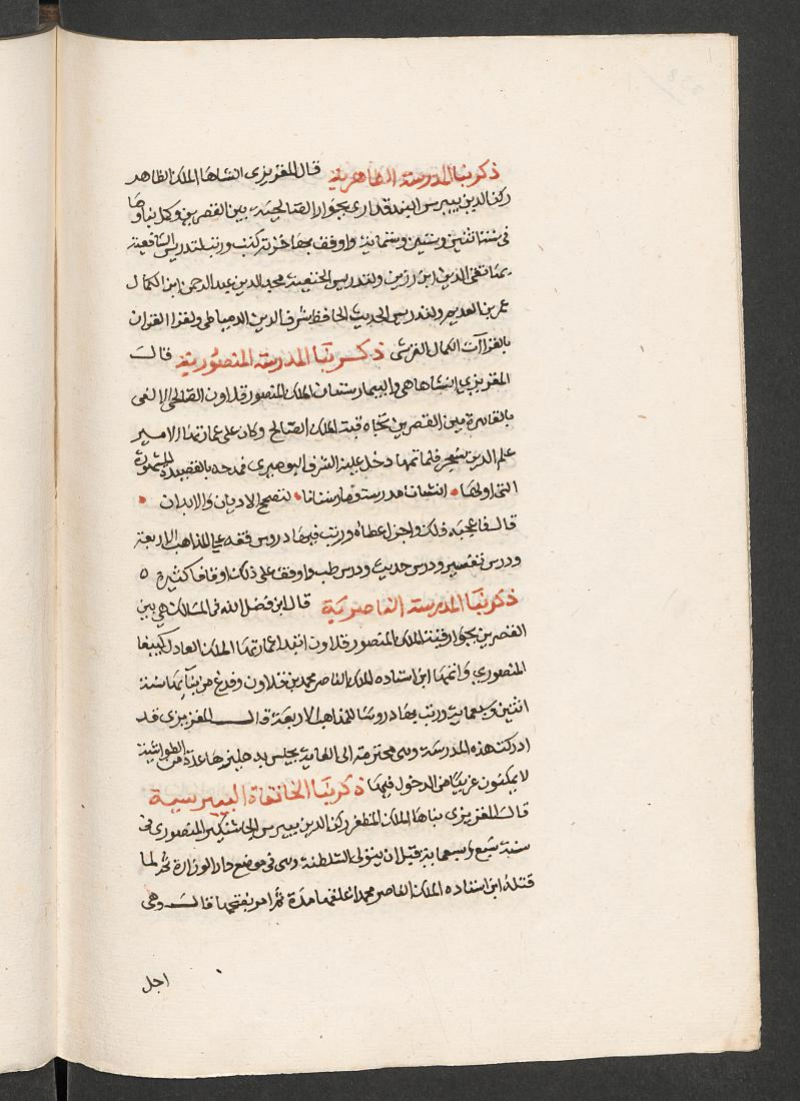 ذكر بنا المدرسة الظاهرية قال المقريزي انشاها الملك الظاهر
ركن الدين بيبرس البندقداري بجوار الصالحية بين القصرين وكمل بناوها
في سنة اثنين وستين وستماية واوقف بها خزانة كتب ورتب لتدريس الشافعية
بها تقي الدين ابن رزين ولتدريس الحنفية مجد الدين عبد الرحمن ابن الكمال
عمر بن العديم ولتدريس الحديث الحافظ شرف الدين الدمياطي ولاقرا القران
بالقراآت الكمال القرشي ذكر بنا المدرسة المنصورية قال
المقريزي انشاها هي والبيمارستان الملك المنصور قلاون الصالحي الالفي
بالقاهرة بين القصرين تجاه قبة الملك الصالح وكان على عمارتها الامير
علم الدين سنجر فلما تمها دخل عليه الشرف البوصيري فمدحه بالقصيدة المشهورة
التي اولها انشات مدرسة ومارستانا لتصحح الاديان والابدان
قال فاعجبه ذلك واجزل عطاه ورتب فيها دروس فقه على المذاهب الاربعة
ودرس تفسير ودرس حديث ودرس طب واوقف على ذلك اوقافا كثيرة ٥
ذكر بنا المدرسة الناصرية قال ابن فضل الله في المسالك هي بين
القصرين بجوار قبة الملك المنصور قلاون ابتدا عمارتها الملك العادل كتبغا
المنصوري واتمها ابن استاده الملك الناصر محمد بن قلاون وفرغ من بنآيها سنة
اثنين وسبعماية ورتب بها دروسا للمذاهب الاربعة قال المقريزي قد
ادركت هذه المدرسة وهي محترمة الى الغاية يجلس بدهليزها عدة من الطواشية
لا يمكنون غريبا من الدخول فيها ذكر بنا الخانقاة البيبرسية
قال المقريزي بناها الملك المظفر ركن الدين بيبرس الجاشنكير المنصوري في
سنة سبع وسبعماية قبل ان يتولى السلطنة وهي في موضع دار الوزارة ثم لما
قتله ابن استاده الملك الناصر محمد اغلقها مدة ثم امر بفتحها قال وهي
اجل